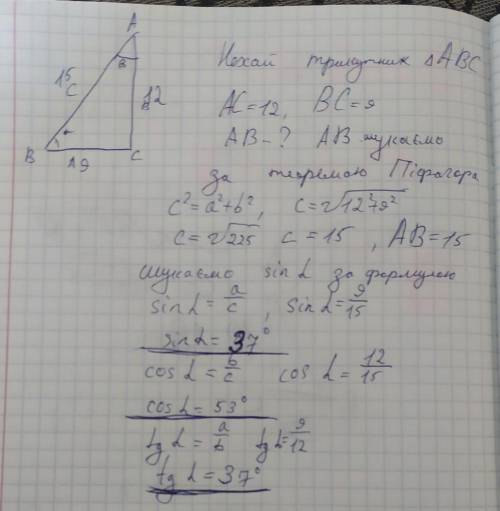 A
B
15
C
12
B
B
A9
C
Нехай трикутник △ABC
AC=12, BC=9
AB-? AB шукаємо
за теоремою Піфагора
c²=a²+b², c=√12²+9²
c=√225 c=15, AB=15
шукаємо sin L за формулою
sin L=a/c, sin L=9/15
sin L=37°
cos L=b/c cos L=12/15
cos L=53°
tg L=a/b tg L=9/12
tg L=37°